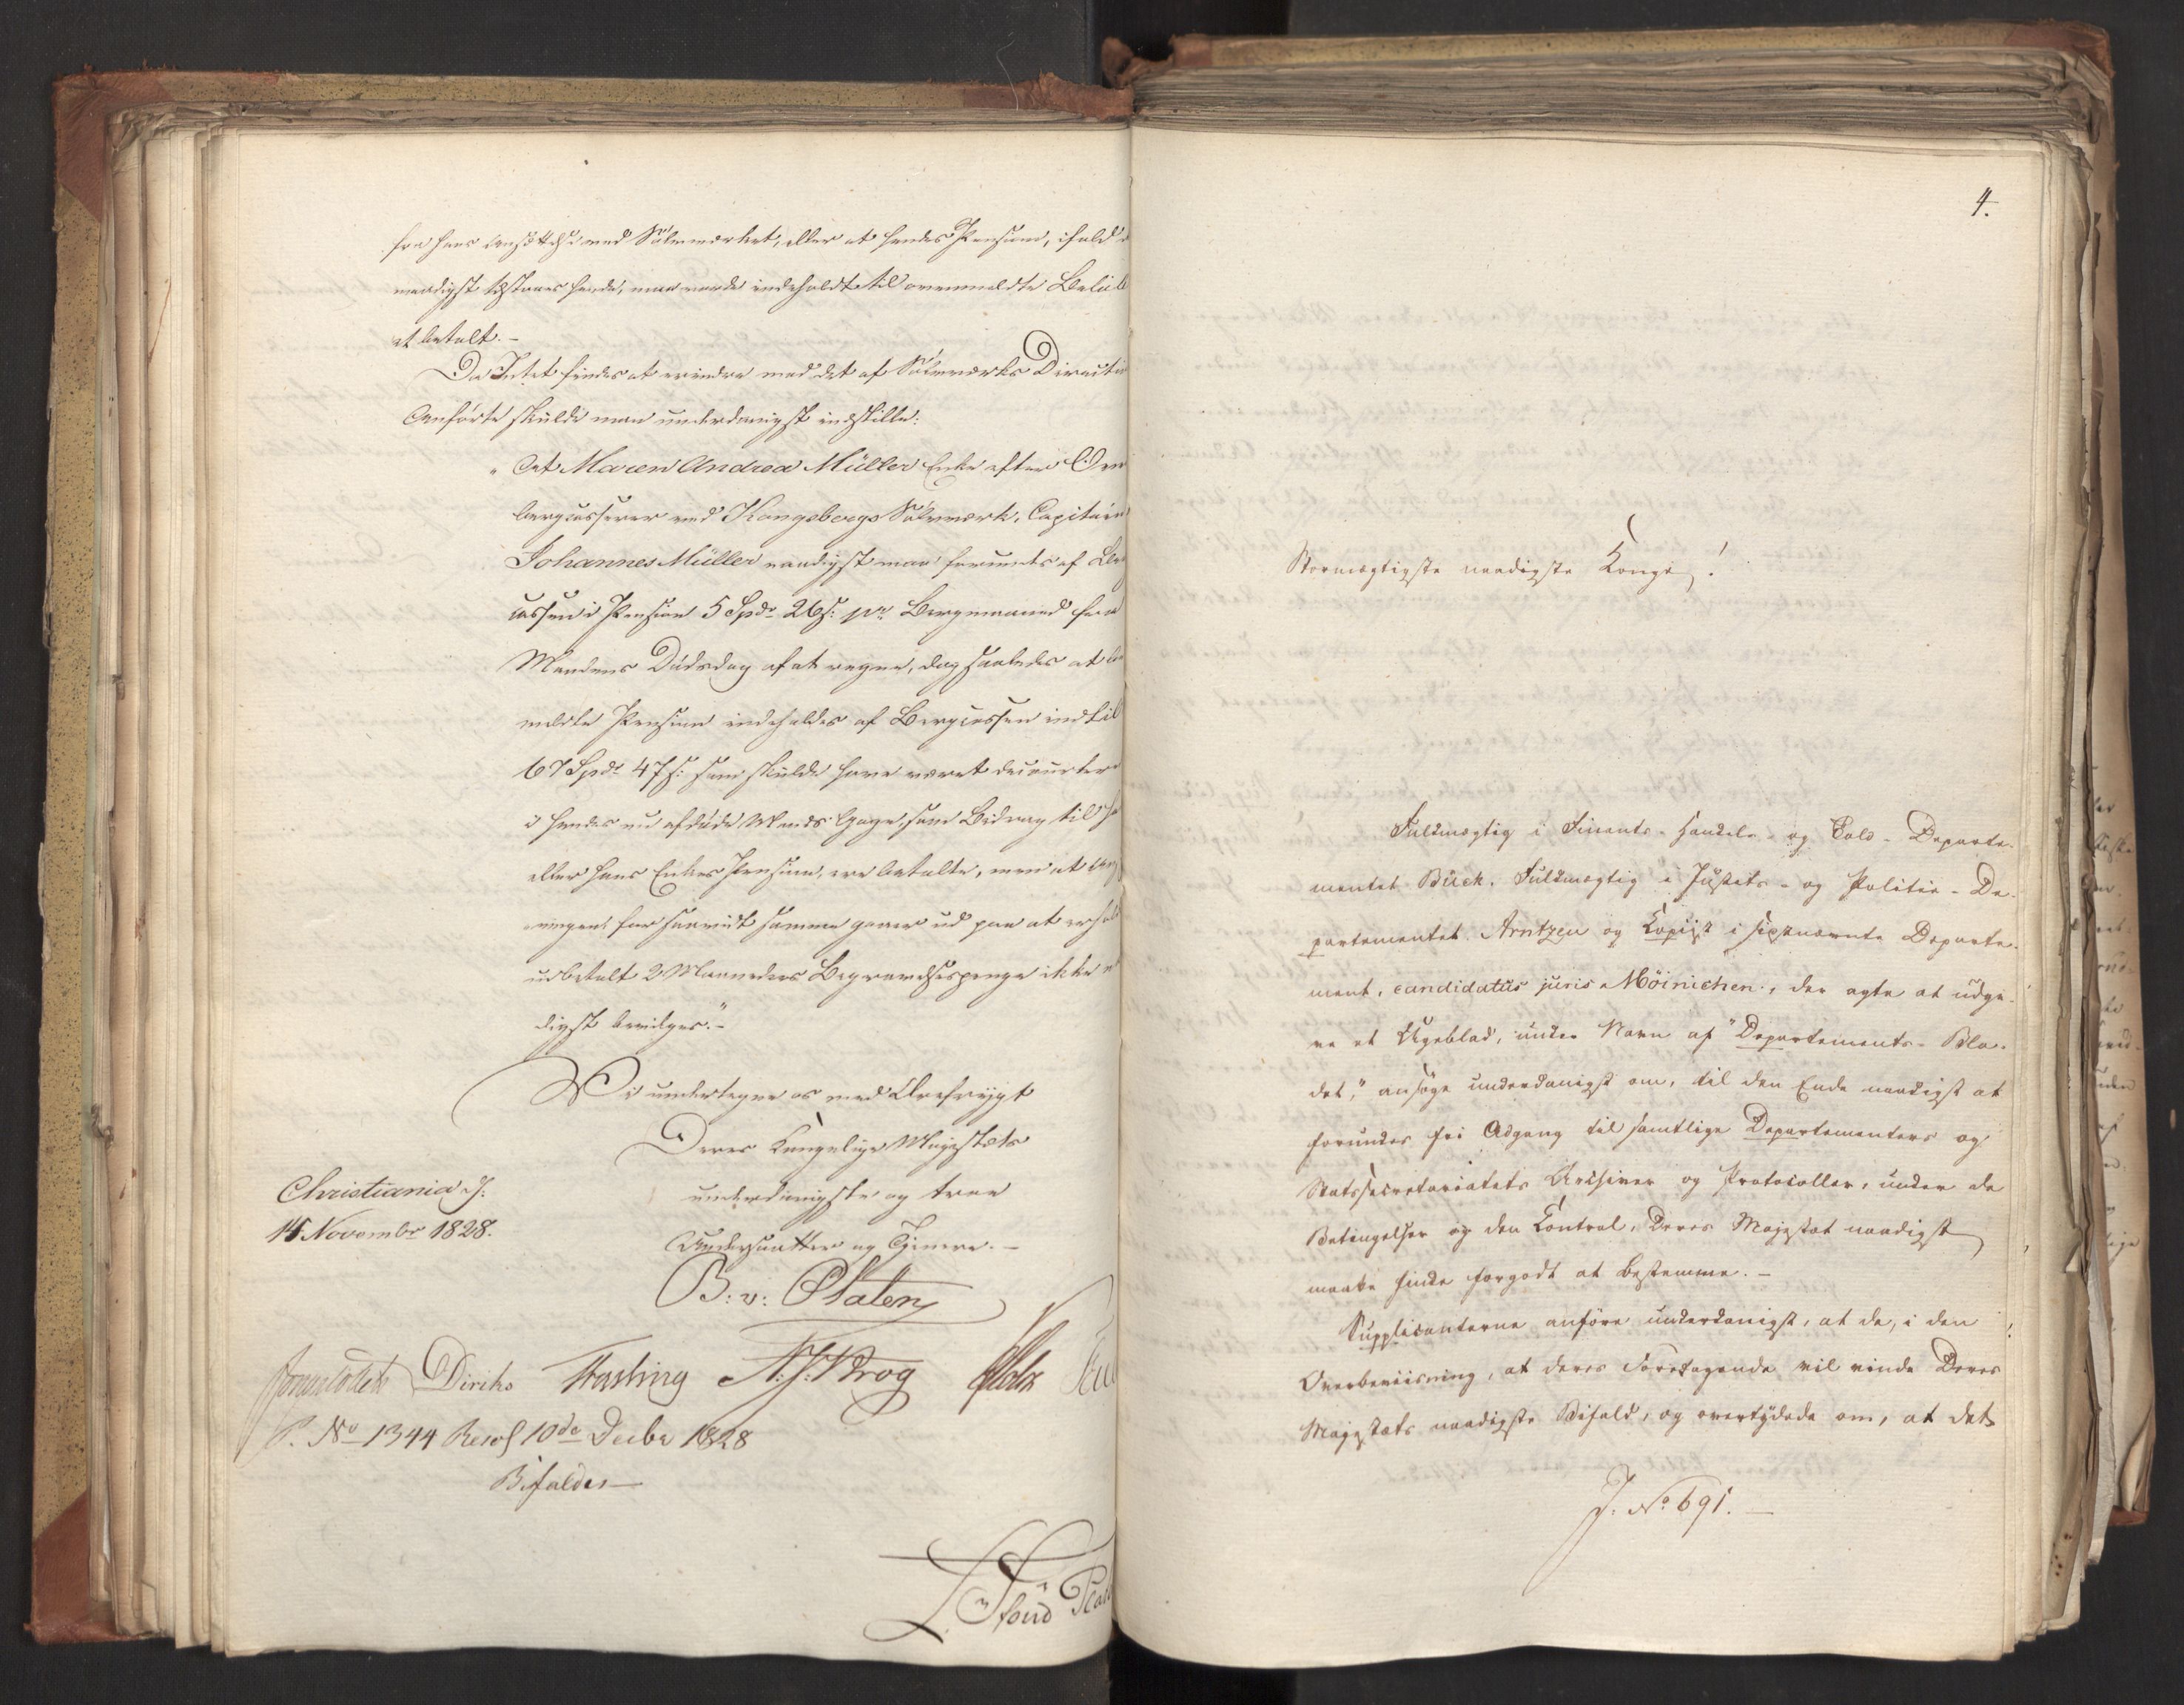 fra hans Ansættelse ved Sølvværket, eller at hendes Pension, ifald
naadigst tilstaaes hende, maa vorde indeholdt til ovenmeldte Beløb
er betalt. –
Da Intet findes at erindre mod det af Sølvværks Directi
Anførte skulde man underdanigst indstille:
„At Maren Andrea Müller Enke efter Over
bergcasserer ved Kongsbergs Sølvværk, Capitain
Johannes Müller naadigst maa forundes af Berg
cassen i Pension 5 Spd. 26 s: pr. Bergmaaned fra
Mandens Dødsdag af at regne, dog saaledes at be
meldte Pension indeholdes af Bergcassen indtil
67 Spd. 47 s: som skulde have været decourtere
i hendes nu afdøde Mands Gage, som Bidrag til
eller hans Enkes Pension, ere betalte, men at Ansø
ningen forsaavidt samme gaaer ud paa at erhol
udbetalt 2 Maaneders Begravelsespenge ikke
digst bevilges.“ –
Vi undertegne os med Ærefrygt
Deres Kongelige Majestæts
underdanigste og troe
Undersaatter og Tjenere. –
Christiania d:
14 Novembr 1828.
B: v: Platen
Diriks Fasting A. J. Krog Holst
P. No 1344 Resol 10de Decbr 1828
Bifaldes –
4.
Stormægtigste naadigste Konge!
Fuldmægtig i Finants- Handels- og Told- Departe-
mentet Buck, Fuldmægtig i Justits- og Politie- De-
partementet Arntzen og Kopist i sidstnævnte Departe-
ment, candidatus juris Möinichen, der agte at udgi-
ve et Ugeblad, under Navn af „Departements- Bla-
det,“ ansøge underdanigst om, til den Ende naadigst at
forundes fri Adgang til samtlige Departementers og
Statssecretariatets Archiver og Protocoller, under de
Betingelser og den Kontrol, Deres Majestæt naadigst
maatte finde forgodt at bestemme. –
Supplicanterne anføre underdanigst, at de, i den
Overbeviisning, at deres Foretagende vil vinde Deres
Majestæts naadigste Bifald, og overtydede om, at det
J: No 691. –